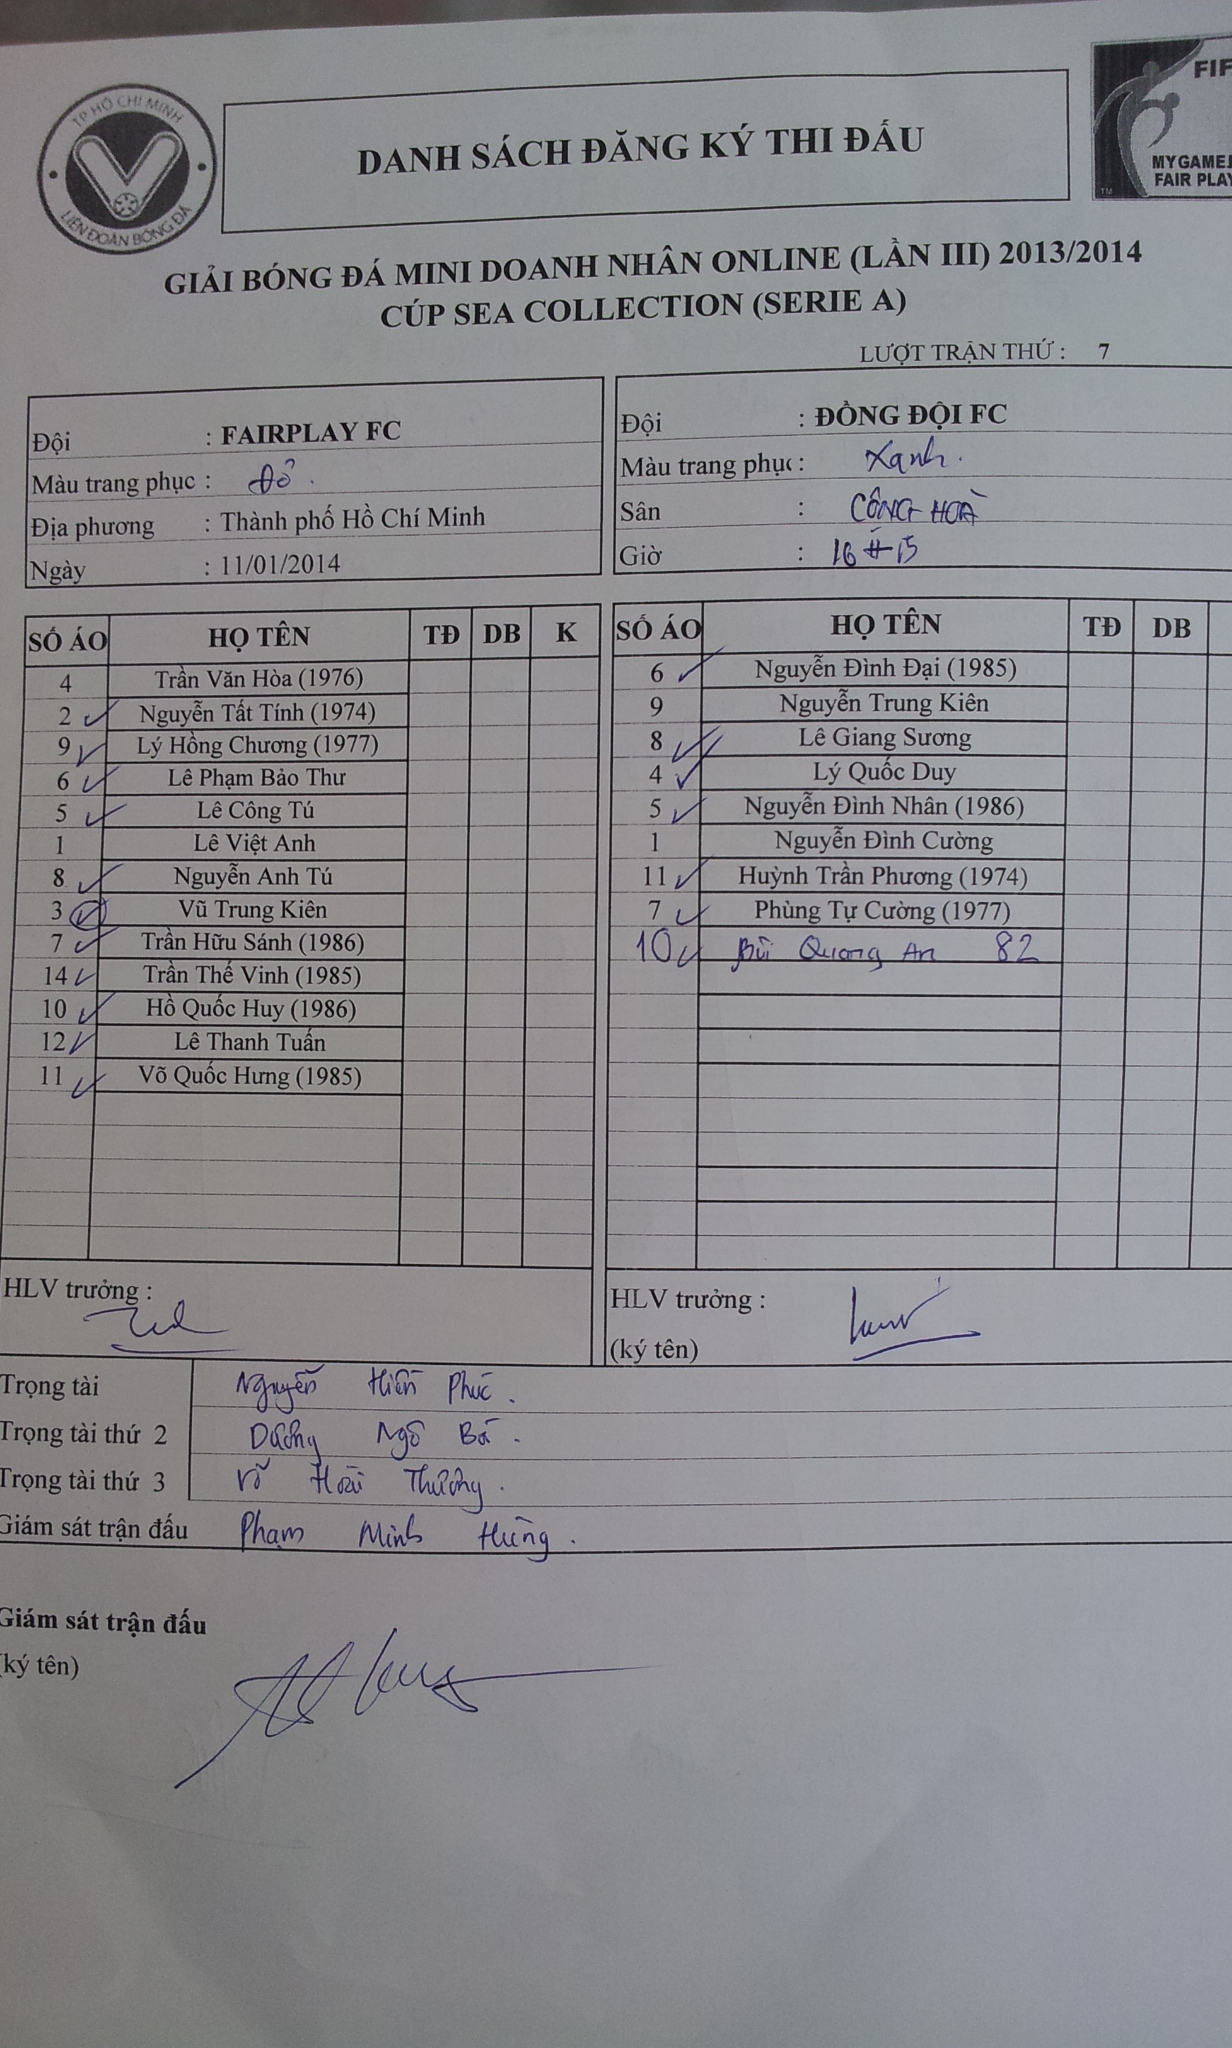 TP HỒ CHÍ MINH
LIÊN ĐOÀN BÓNG ĐÁ
DANH SÁCH ĐĂNG KÝ THI ĐẤU
FIF
MY GAME
FAIR PLAY
TM
GIẢI BÓNG ĐÁ MINI DOANH NHÂN ONLINE (LẦN III) 2013/2014
CÚP SEA COLLECTION (SERIE A)
LƯỢT TRẬN THỨ : 7
Đội : FAIRPLAY FC
Màu trang phục : Đỏ.
Địa phương : Thành phố Hồ Chí Minh
Ngày : 11/01/2014
Đội : ĐỒNG ĐỘI FC
Màu trang phục : Xanh.
Sân : CỘNG HOÀ
Giờ : 16 H 15
SỐ ÁO HỌ TÊN TĐ DB K
4 Trần Văn Hòa (1976)
2 Nguyễn Tất Tính (1974)
9 Lý Hồng Chương (1977)
6 Lê Phạm Bảo Thư
5 Lê Công Tú
1 Lê Việt Anh
8 Nguyễn Anh Tú
3 Vũ Trung Kiên
7 Trần Hữu Sánh (1986)
14 Trần Thế Vinh (1985)
10 Hồ Quốc Huy (1986)
12 Lê Thanh Tuấn
11 Võ Quốc Hưng (1985)
HLV trưởng :
SỐ ÁO HỌ TÊN TĐ DB
6 Nguyễn Đình Đại (1985)
9 Nguyễn Trung Kiên
8 Lê Giang Sương
4 Lý Quốc Duy
5 Nguyễn Đình Nhân (1986)
1 Nguyễn Đình Cường
11 Huỳnh Trần Phương (1974)
7 Phùng Tự Cường (1977)
10 Bùi Quang An 82
HLV trưởng :
(ký tên)
Trọng tài Nguyễn Hiền Phúc.
Trọng tài thứ 2 Dương Ngô Bá.
Trọng tài thứ 3 Võ Hoài Thương.
Giám sát trận đấu Phạm Minh Hùng.
Giám sát trận đấu
(ký tên)